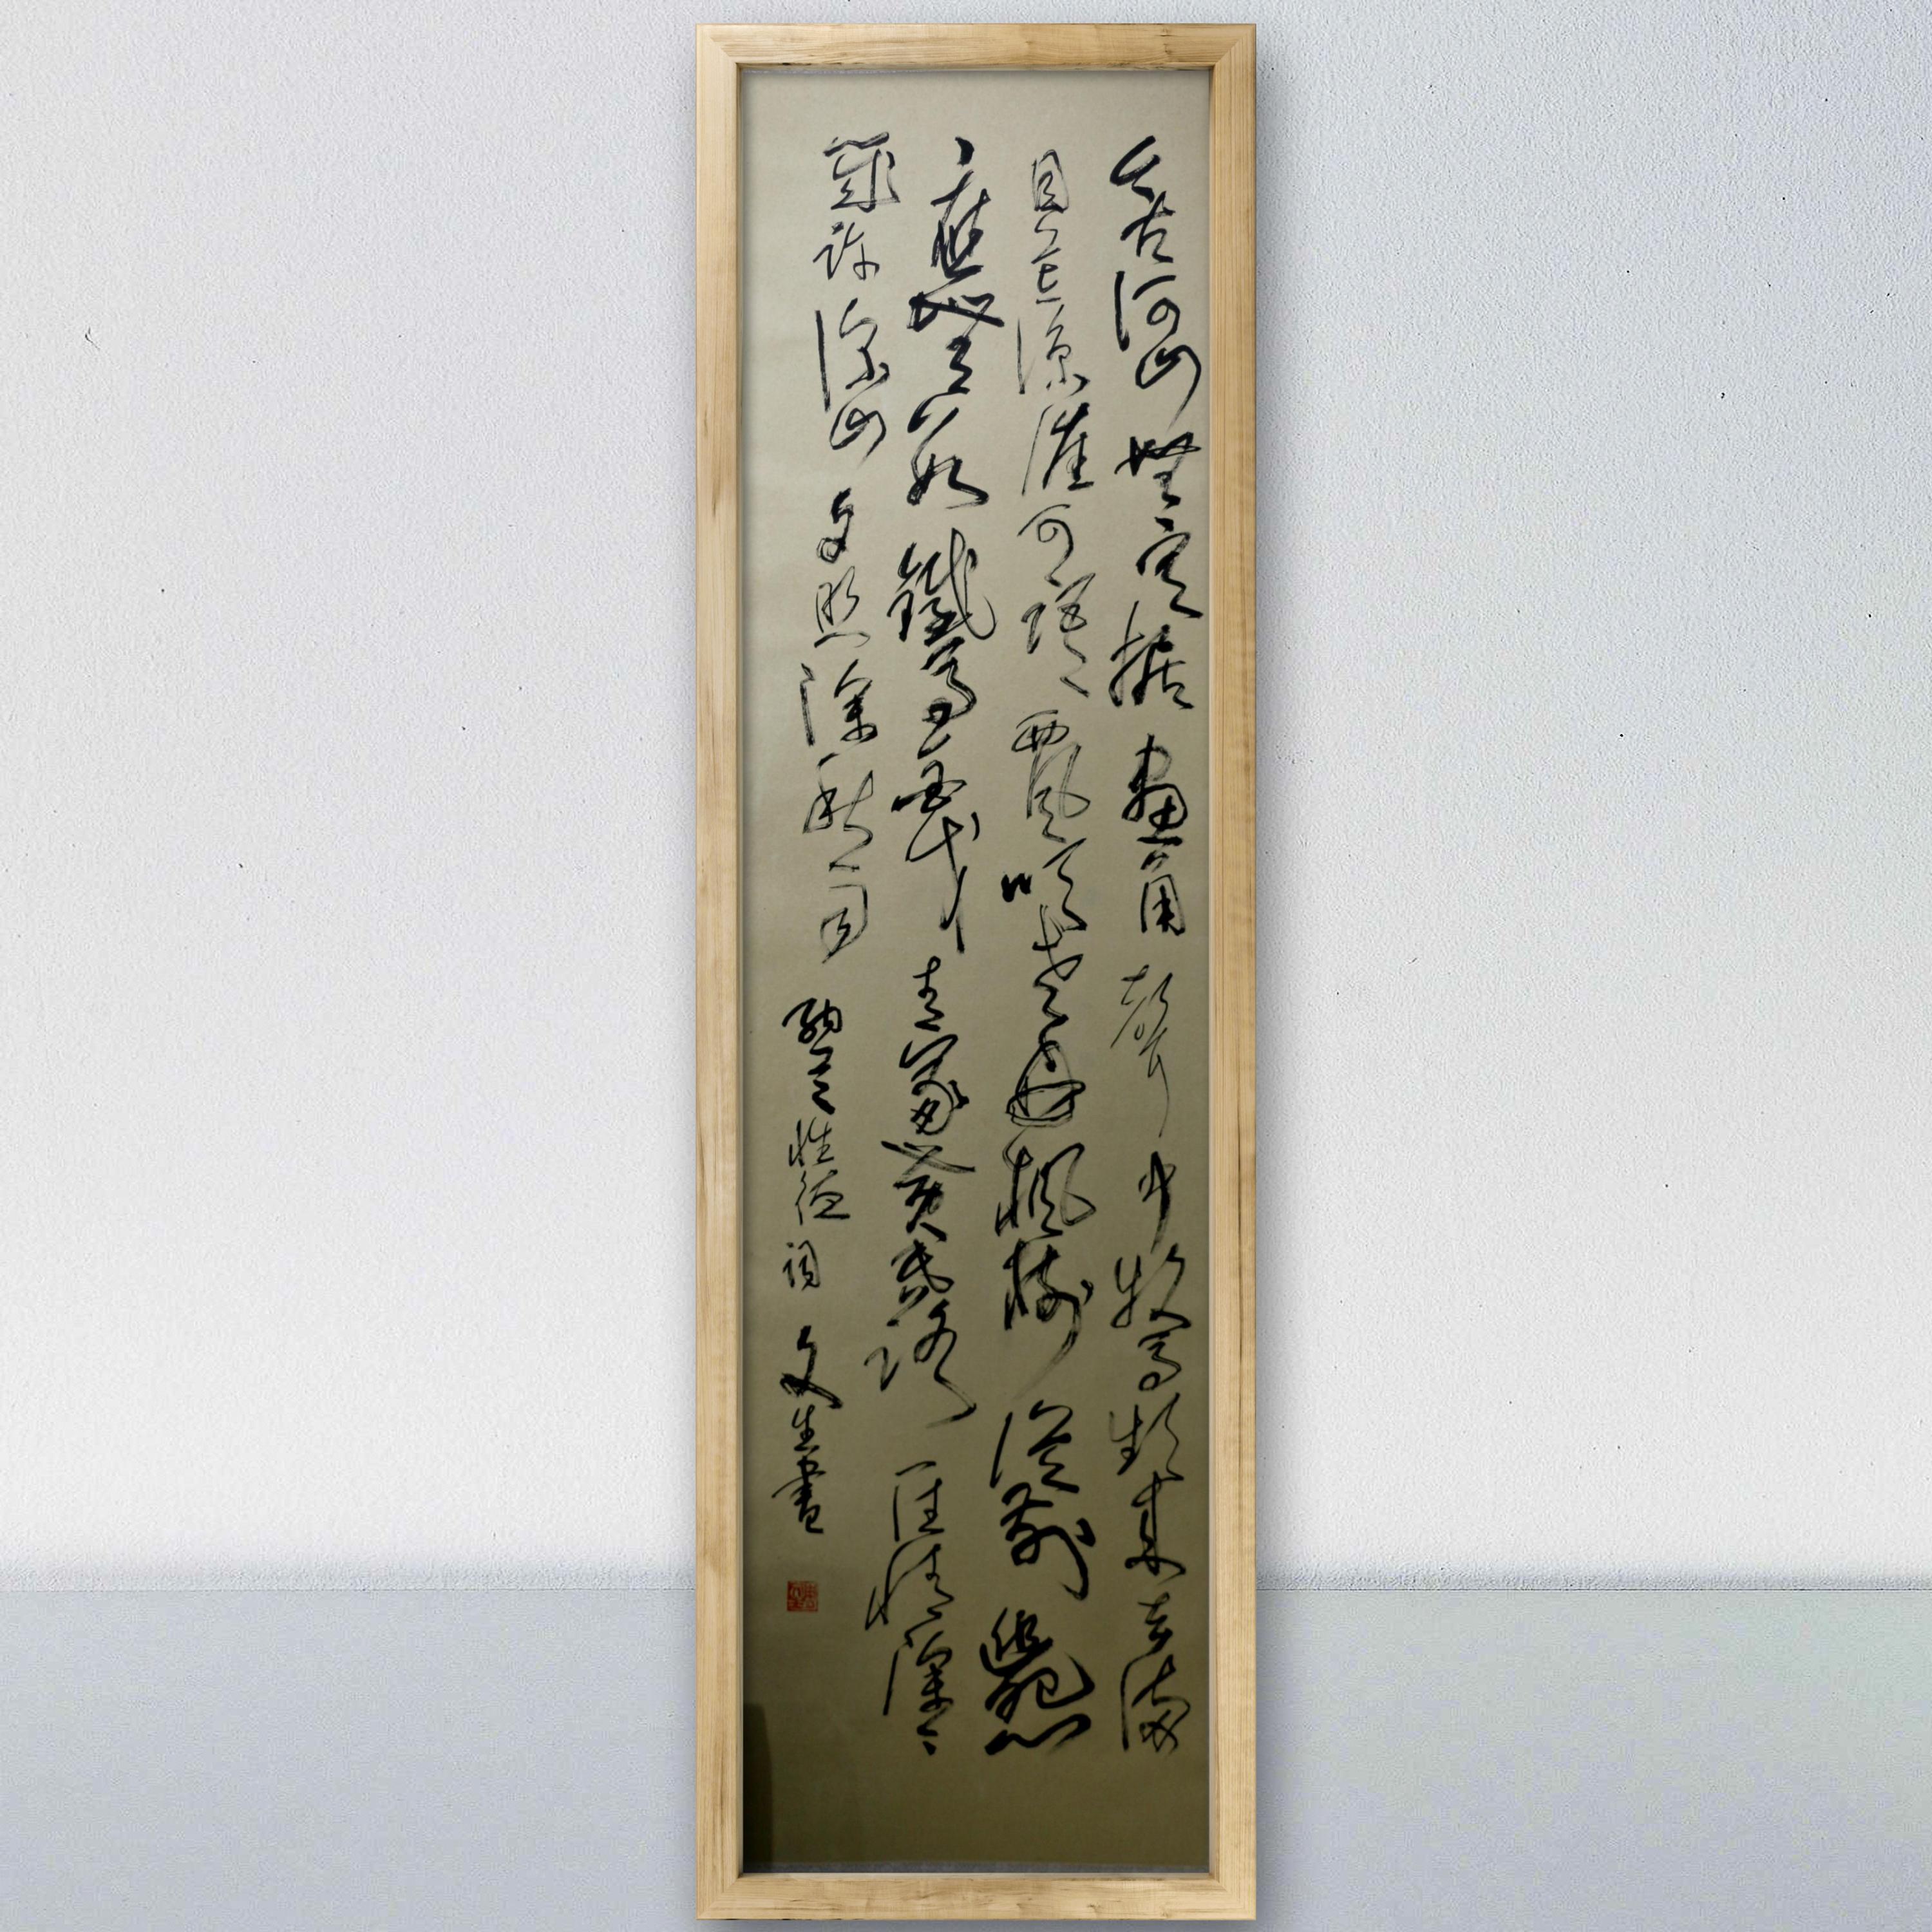 今古河山無定据畫角聲中牧馬頻來去滿
目荒涼誰可語西風吹老丹楓樹從前幽怨
應無數鐵馬金戈青冢黃昏路一往情深深
幾許深山夕照深秋雨納蘭性德詞文生書